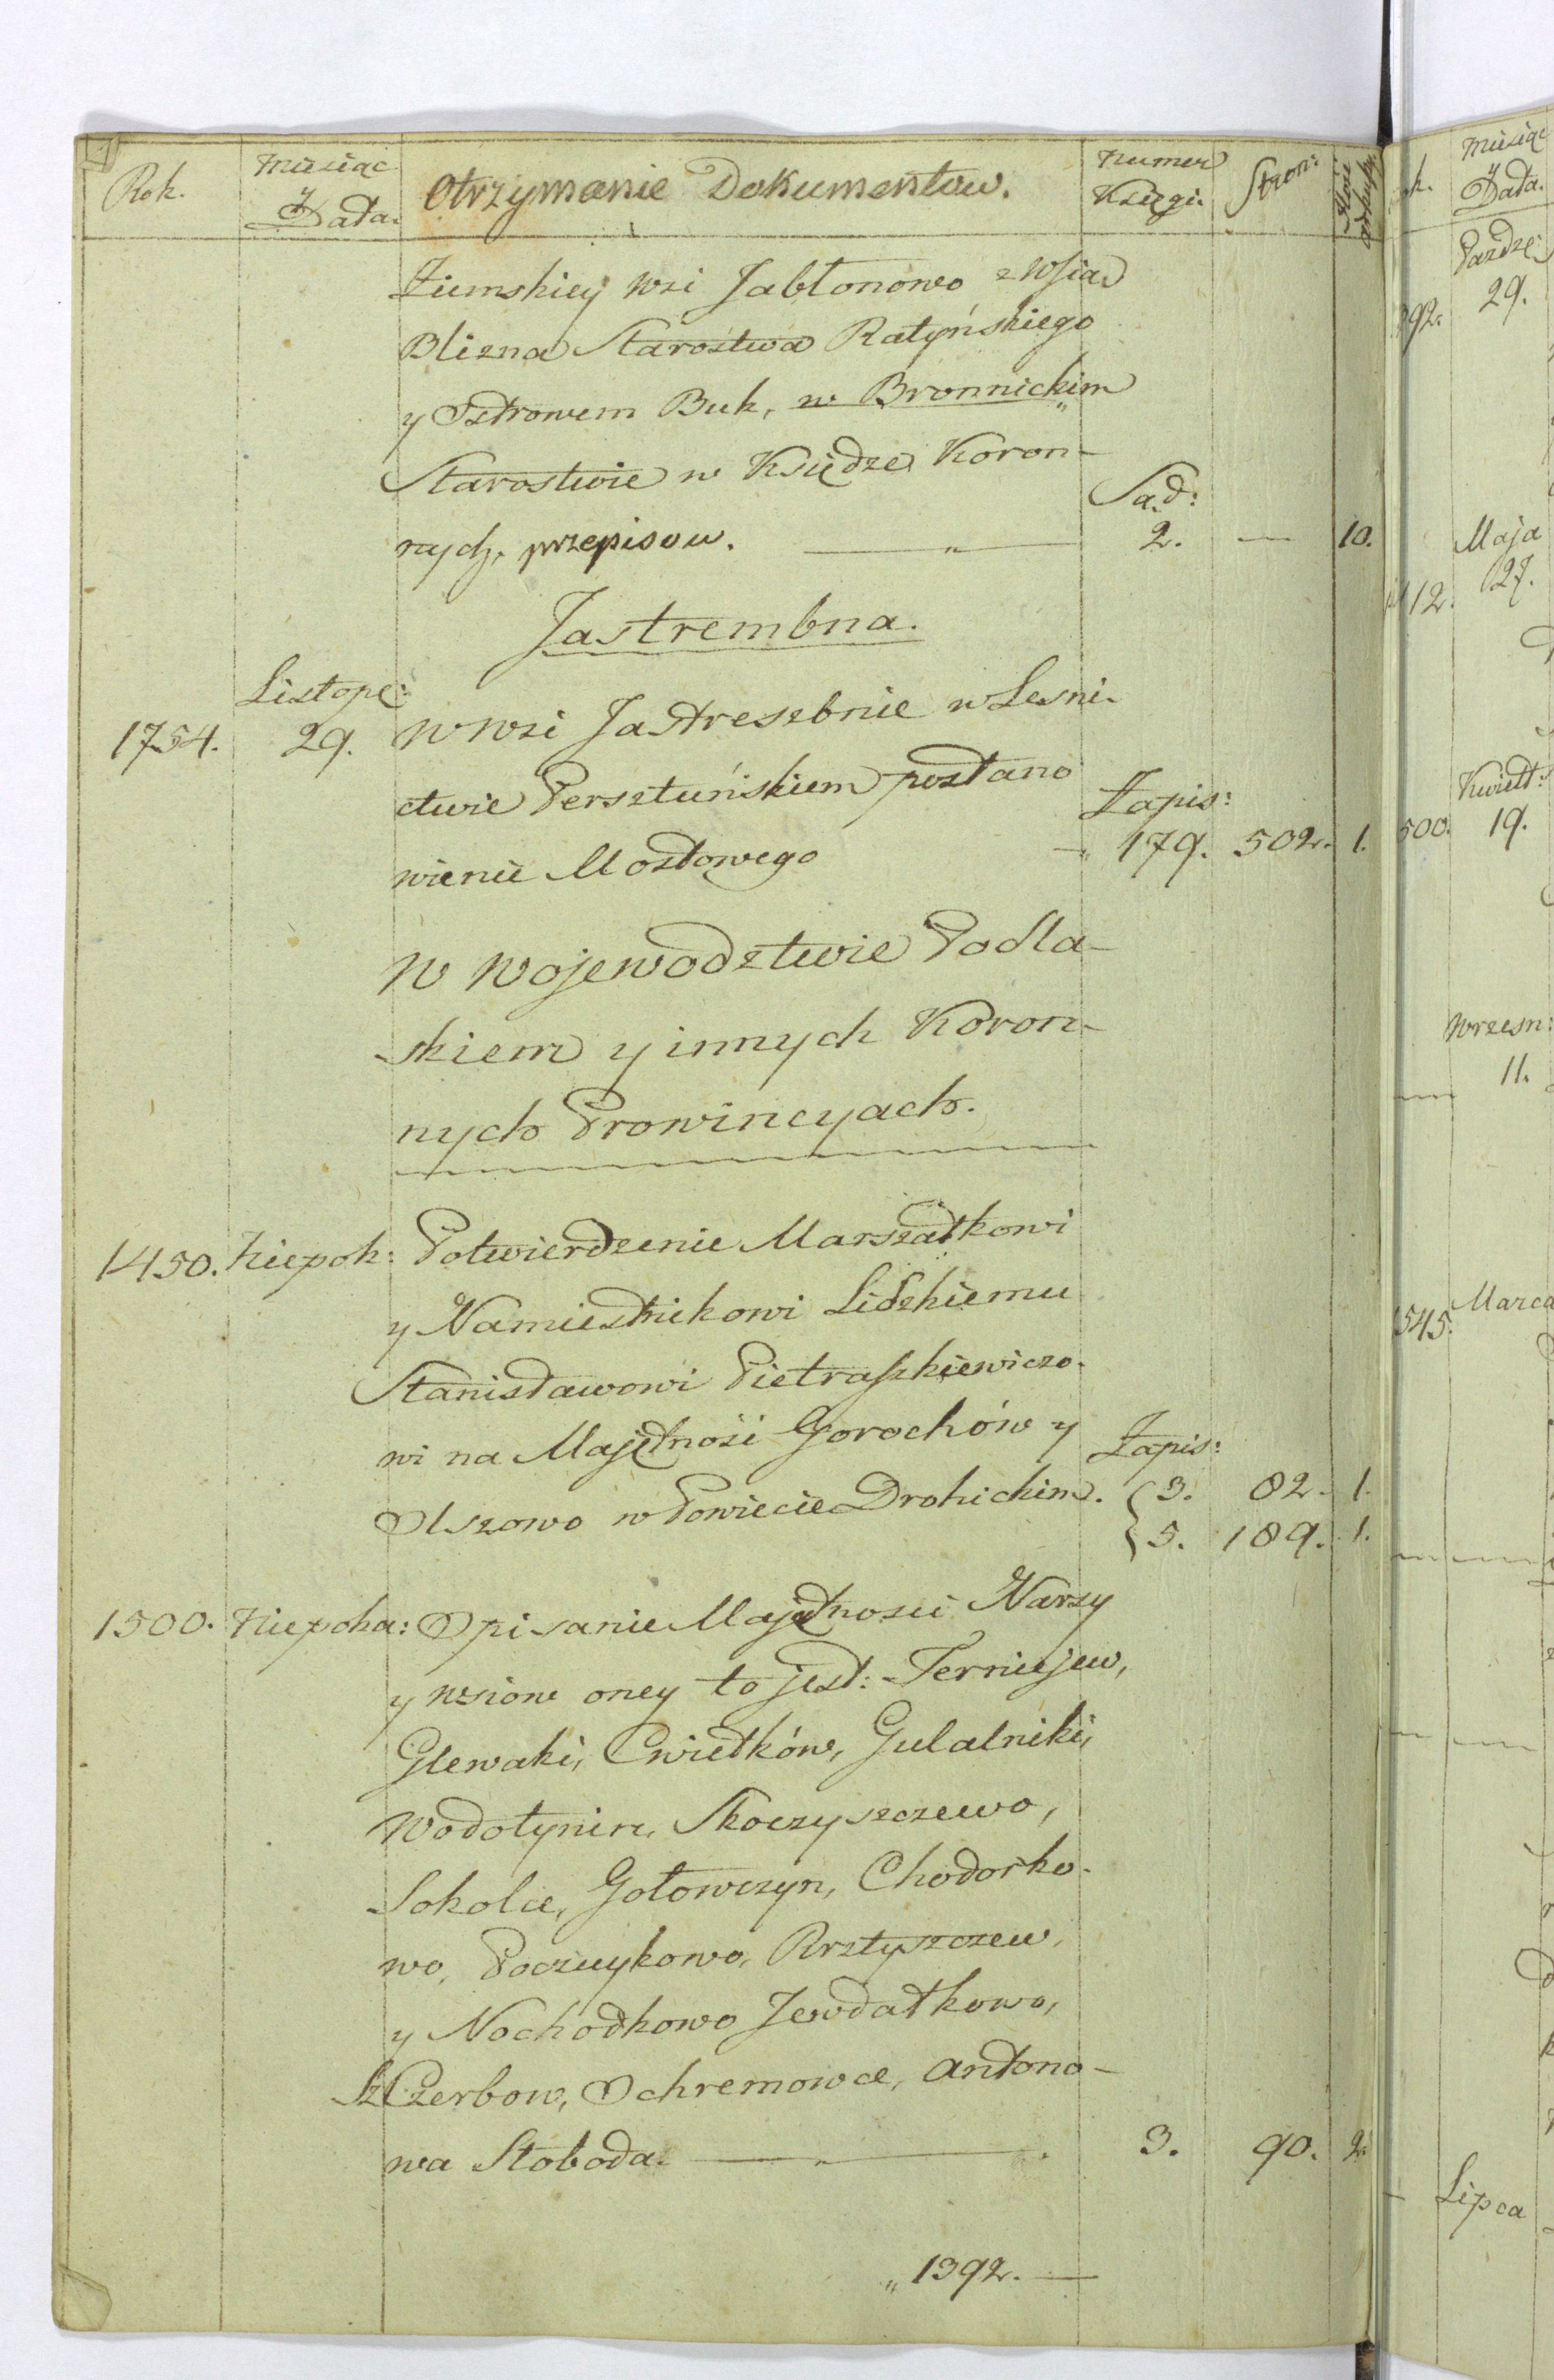 Rok. Miesiąc y Data. Otrzymanie Dokumentow. Numer Księgi. Stron: Ilość arkuszy
Ziemskiey wsi Jabłonowo z wsią
Blizna Starostwa Ratyńskiego
y Ostrowem Buk, w Bronnickim
Starostwie w Księdze Koron-
nych, przepisow. Sąd: 2. — 10.
Jastrembna.
1754. Listope: 29. W wsi Jastreszbnie w Lesni-
ctwie Persztuńskiem postano
wienie Mostowego Zapis: 179. 502. 1.
W Wojewodztwie Podla-
skiem y innych Koron-
nych Prowincyach.
1450. Niepok: Potwierdzenie Marszałkowi
y Namiestnikowi Lidzkiemu
Stanisławowi Pietraszkiewiczo-
wi na Majętności Gorochów y
Olszowo w Powiecie Drohickim. Zapis: 3. 82. 1.
5. 189. 1.
1500. Niepoka: Opisanie Majętnosci Narzy
y wsiow oney to jest: Terniejew,
Glewaki, Cwietków, Gulalniki,
Wodotynin, Skoczyszczewo,
Sokolce, Gołowczyn, Chodorko-
wo, Poczuykowo, Rrztyszczew,
y Nochodkowo Jewdatkowo,
SzCzerbow, Ochremowce, Antono-
wa Słoboda. 3. 90. 2.
„ 1392. —
Miesiąc y Data.
Pazdzę:
29.
Maja
27.
112.
Kwiet:
500. 19.
Wrzesn:
11.
545. Marca
Lipca